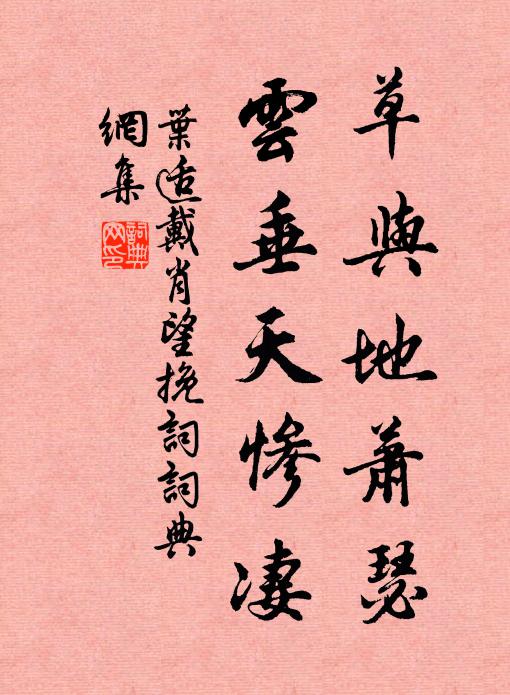 草與地蕭瑟
雲垂天慘凄
葉适戴肖望挽詞詞典
網集
詞典網印